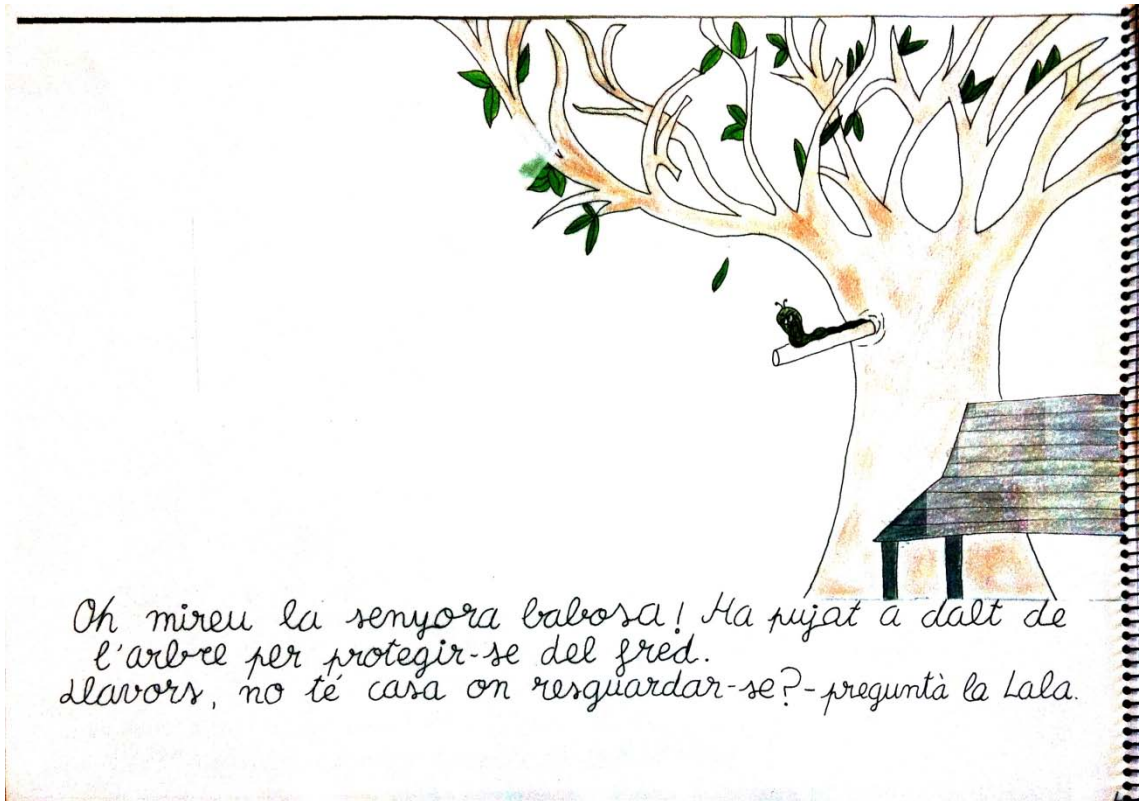 Oh mireu la senyora babosa! Ha pujat a dalt de
l'arbre per protegir-se del fred.
Llavors, no té casa on resguardar-se?-preguntà la Lala.